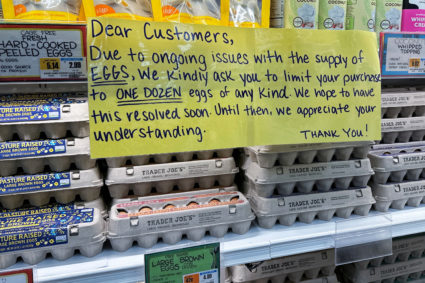 CAGE FREE
FRESH
HARD-COOKED
PEELED EGGS
Dear Customers,
Due to ongoing issues with the supply of
EGGS, we kindly ask you to limit your purchase
to ONE DOZEN eggs of any kind. We hope to have
this resolved soon. Until then, we appreciate your
understanding.
THANK YOU!
WHIPPED
TOPPING
PASTURE RAISED
LARGE BROWN EGGS
TRADER JOE'S
TRADER JOE'S
TRADER JOE'S
PASTURE RAISED
LARGE BROWN EGGS
TRADER JOE'S
LARGE BROWN
EGGS
TRADER JOE'S